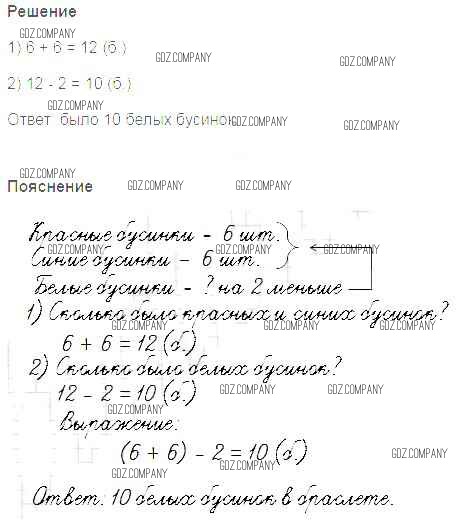 Решение
GDZ.COMPANY
1) 6 + 6 = 12 (б.)
GDZ.COMPANY
GDZ.COMPANY
2) 12 - 2 = 10 (б.)
GDZ.COMPANY
Ответ было 10 белых бусинок
GDZ.COMPANY
GDZ.COMPANY
GDZ.COMPANY
Пояснение
GDZ.COMPANY
GDZ.COMPANY
Красные бусинки - 6 шт.
GDZ.COMPANY
GDZ.COMPANY
GDZ.COMPANY
Синие бусинки - 6 шт.
Белые бусинки - ? на 2 меньше
GDZ.COMPANY
GDZ.COMPANY
1) Сколько было красных и синих бусинок?
GDZ.COMPANY
GDZ.COMPANY
GDZ.COMPANY
6 + 6 = 12 (б.)
2) Сколько было белых бусинок?
GDZ.COMPANY
12 - 2 = 10 (б.)
GDZ.COMPANY
GDZ.COMPANY
GDZ.COMPANY
Выражение:
(6 + 6) - 2 = 10 (б.)
GDZ.COMPANY
GDZ.COMPANY
GDZ.COMPANY
Ответ: 10 белых бусинок в браслете.